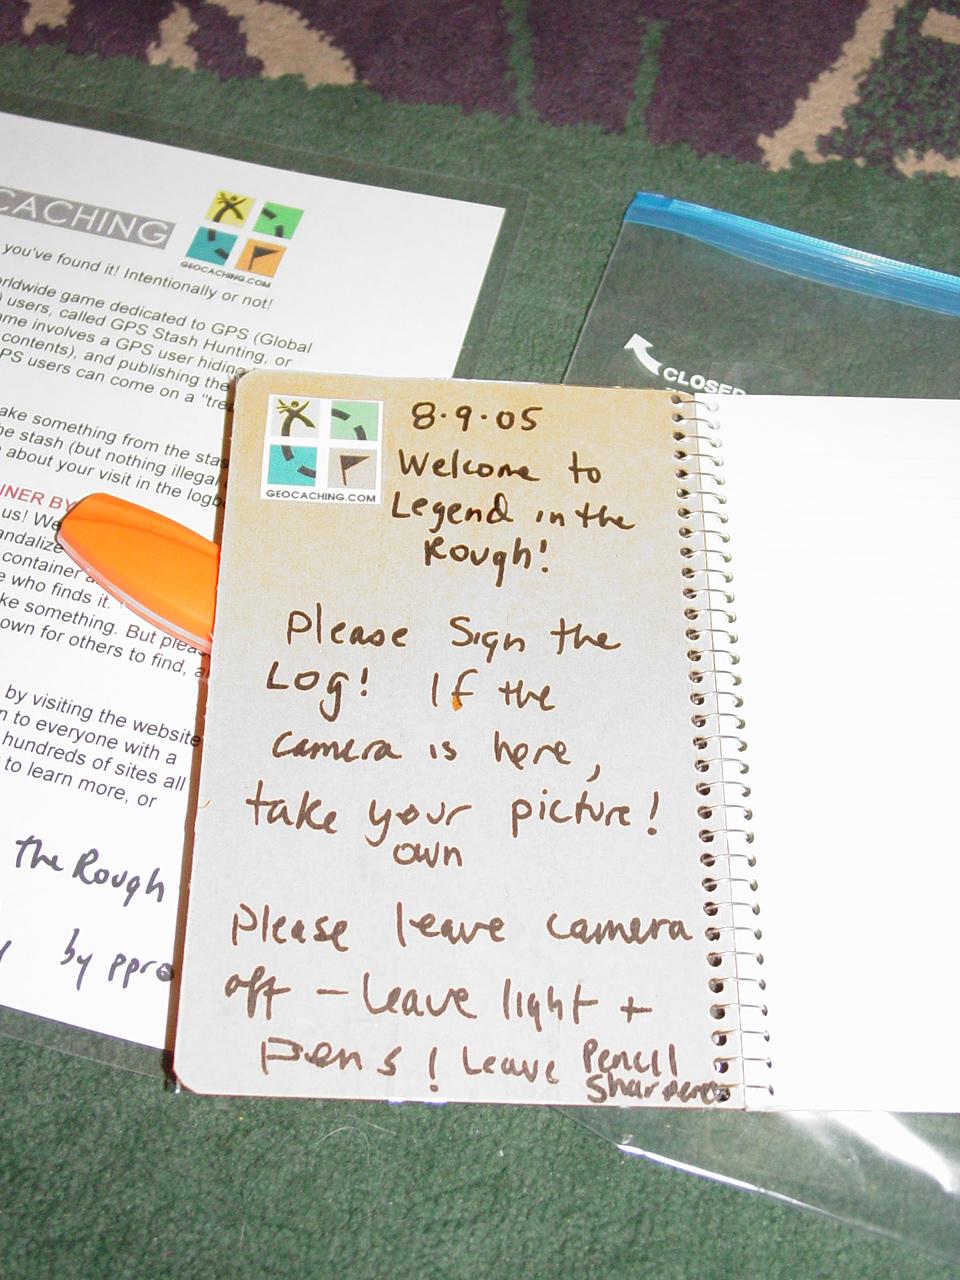 CACHING
GEOCACHING.COM
you've found it! Intentionally or not!
worldwide game dedicated to GPS (Global
users, called GPS Stash Hunting, or
involves a GPS user hiding
contents), and publishing the
users can come on a "tre
something from the stas
the stash (but nothing illega
about your visit in the logb
BY
us! We
container
who finds it.
something. But pleas
own for others to find, a
by visiting the website
to everyone with a
hundreds of sites all
to learn more, or
the Rough
by ppro
CLOSED
GEOCACHING.COM
8.9.05
Welcome to
Legend in the
Rough!
Please Sign the
Log! If the
camera is here,
take your picture!
own
Please leave camera
off - Leave light +
pens! Leave Pencil
Sharpener